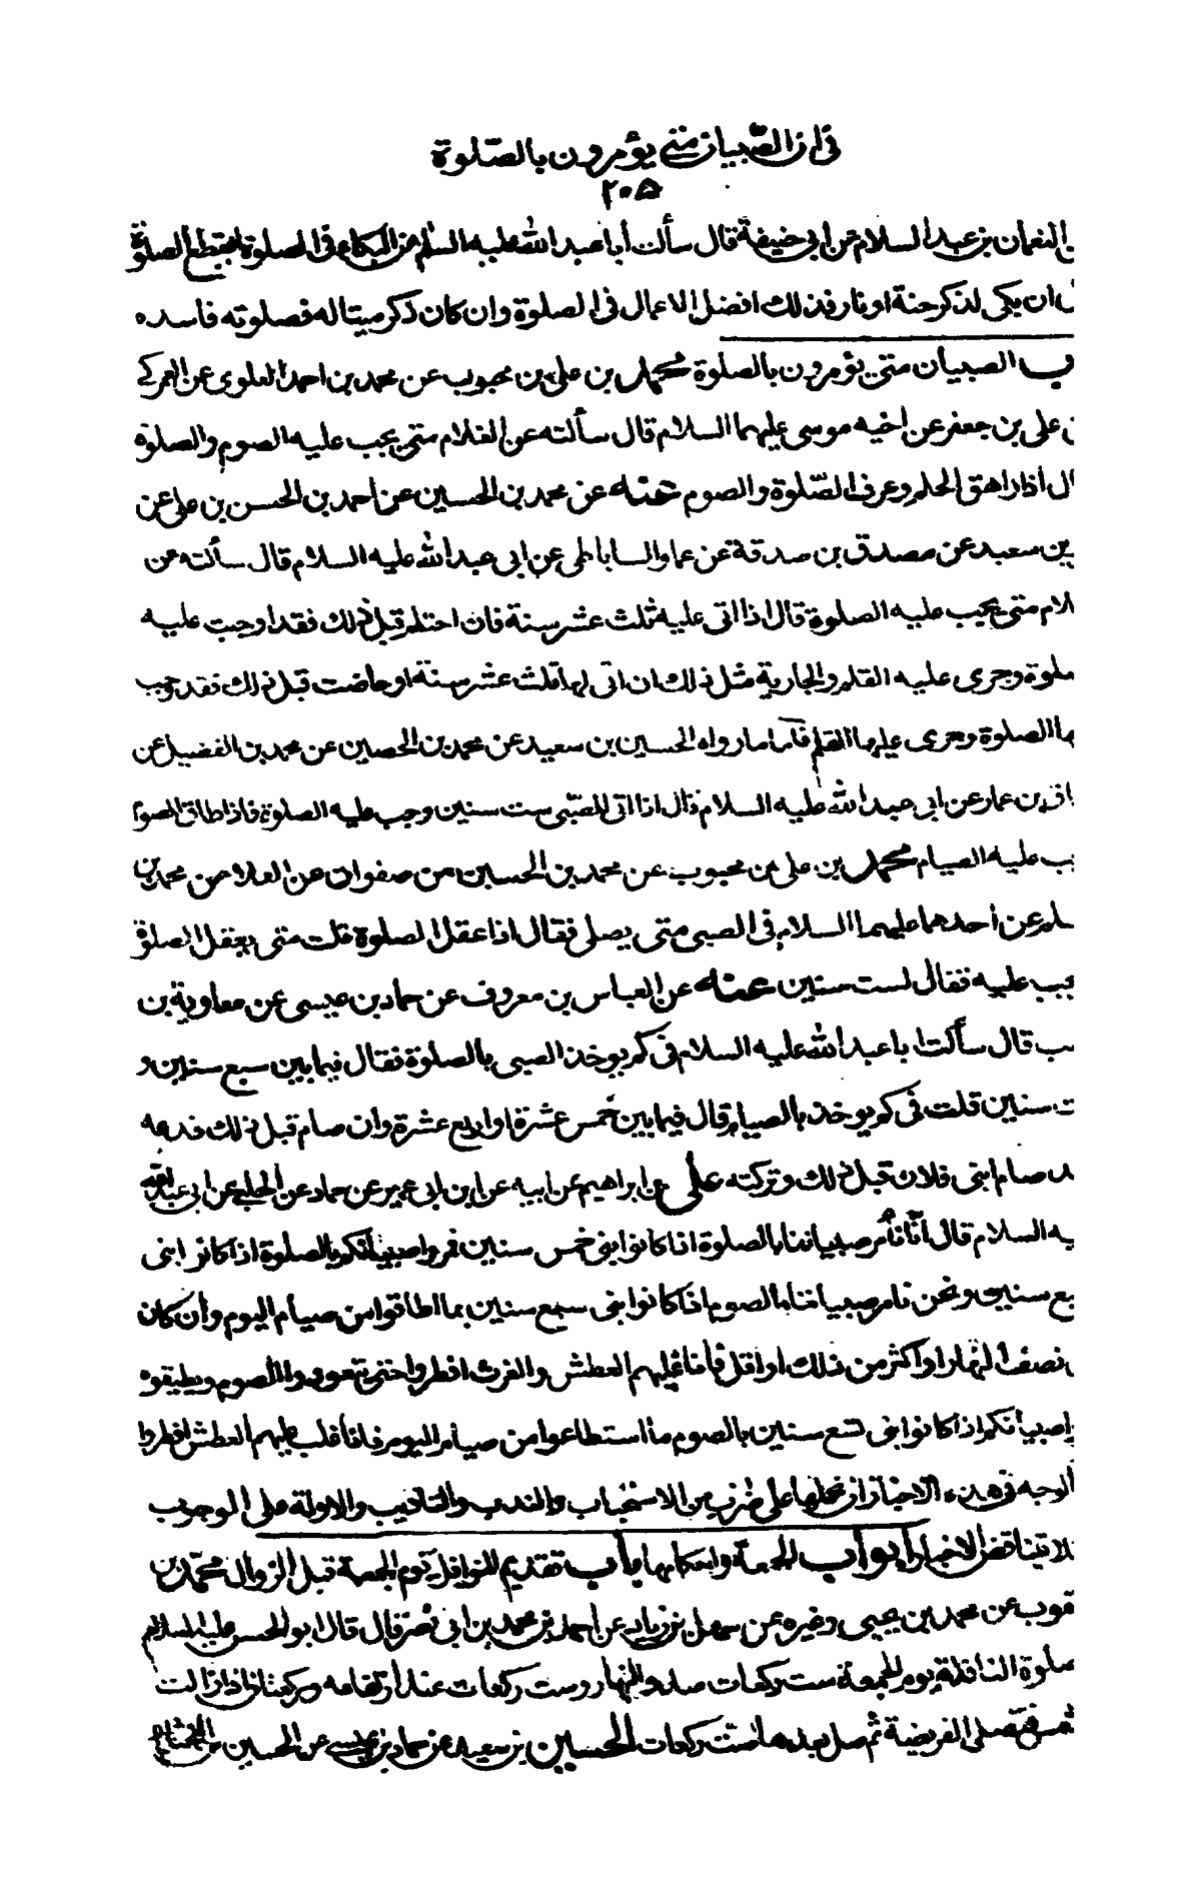 في ان الصّبيان متى يؤمرون بالصّلوة
٢٠٥
النعمان بن عبد السلام عن ابى حنيفة قال سألت أبا عبد الله عليه السلام عن البكاء فى الصلوة ايقطع الصلوة
ان بكى لذكر جنة او نار فذلك افضل الاعمال فى الصلوة وان كان ذكر ميتا له فصلوته فاسده
الصبيان متى يؤمرون بالصلوة محمد بن على بن محبوب عن محمد بن احمد العلوى عن العمركى
على بن جعفر عن اخيه موسى عليهما السلام قال سألته عن الغلام متى يجب عليه الصوم والصلوة
ال اذا راهق الحلم وعرف الصّلوة والصوم عنه عن محمد بن الحسين عن احمد بن الحسن بن على عن
بن سعيد عن مصدق بن صدقة عن عمار الساباطى عن ابى عبد الله عليه السلام قال سألته عن
لام متى يجب عليه الصلوة قال اذا اتى عليه ثلث عشر سنة فان احتلم قبل ذلك فقد اوجبت عليه
صلوة وجرى عليه القلم والجارية مثل ذلك ان اتى لها ثلث عشر سنة او حاضت قبل ذلك فقد وجب
ها الصلوة وجرى عليها القلم فأما ما رواه الحسين بن سعيد عن محمد بن الحصين عن محمد بن الفضيل عن
اق بن عمار عن ابى عبد الله عليه السلام قال اذا اتى للصّبى ست سنين وجب عليه الصلوة فاذا طاق الصوم
ب عليه الصيام محمد بن على بن محبوب عن محمد بن الحسين عن صفوان عن العلا عن محمد بن
سلم عن احدهما عليهما السلام فى الصبى متى يصلى فقال اذا عقل الصلوة قلت متى يعقل الصلوة
جب عليه فقال لست سنين عنه عن العباس بن معروف عن حماد بن عيسى عن معاوية بن
هب قال سألت ابا عبد الله عليه السلام فى كم يوخذ الصبى بالصلوة فقال فيما بين سبع سنين و
ت سنين قلت فى كم يوخذ بالصيام قال فيما بين خمس عشرة او اربع عشرة وان صام قبل ذلك فدعه
د صام ابنى فلان قبل ذلك وتركته على بن ابراهيم عن ابيه عن ابن ابى عمير عن حماد عن الحلبى عن ابى عبد الله
يه السلام قال انّا نأمر صبياننا بالصلوة اذا كانوا بنى خمس سنين فمروا صبيانكم بالصلوة اذا كانوا بنى
بع سنين ونحن نامر صبياننا بالصوم اذا كانوا بنى سبع سنين بما اطاقوا من صيام اليوم وان كان
نصف النهار او اكثر من ذلك او اقل فاذا غلبهم العطش والغرث افطروا حتى تتعودوا الصوم ويطيقوه
صبيانكم اذا كانوا بنى تسع سنين بالصوم ما استطاعوا من صيام اليوم فاذا غلب عليهم العطش افطروا
الوجه فى هذه الاخبار ان نحملها على ضرب من الاستحباب والندب والتاديب والاولة على الوجوب
لا تتناقض الاخبار ابواب الجمعة واحكامها باب تقديم النوافل يوم الجمعة قبل الزوال محمّد بن
قوب عن محمد بن يحيى وغيره عن سهل بن زياد عن احمد بن محمد بن ابى نصر قال قال ابو الحسن عليه السلام
صلوة النافلة يوم الجمعة ست ركعات صدر النهار وست ركعات عند ارتفاعه وركعتان اذا زالت
شمس ثم صل الفريضة ثم صل بعدها ست ركعات الحسين بن سعيد عن حماد بن عيسى عن الحسين بن المختار